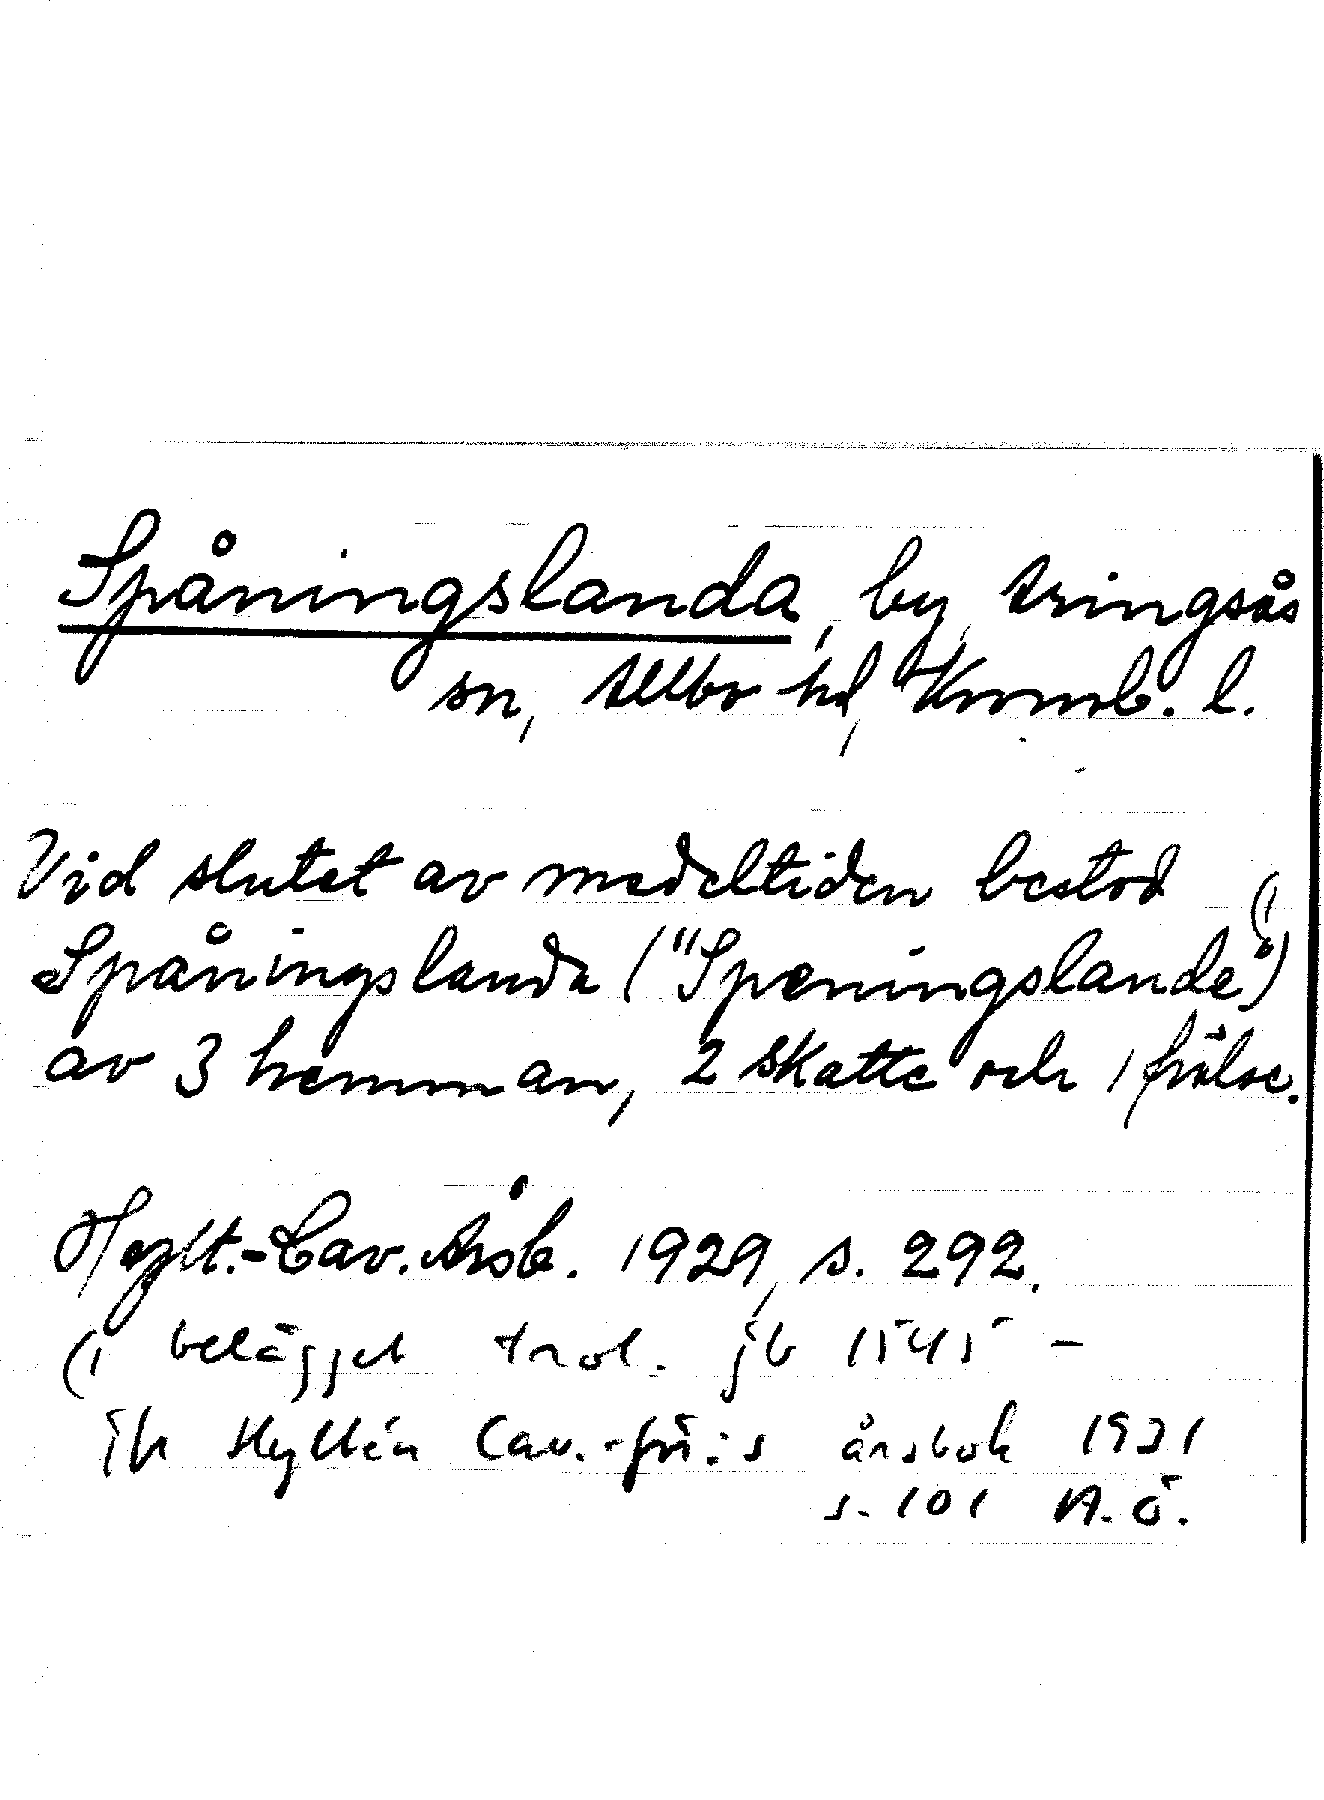 Spåningslanda, by, Aringsås
sn, Allbo hd, Kronob. l.
Vid slutet av medeltiden bestod (1
Spåningslanda ("Speningslande")
av 3 hemman, 2 skatte och 1 frälse.
Hylt.-Cav. Årsb. 1929, s. 292.
(1 belägget trol. jb 1545 –
jfr Hyltén Cav.-för:s årsbok 1931
s. 101 A.Ö.